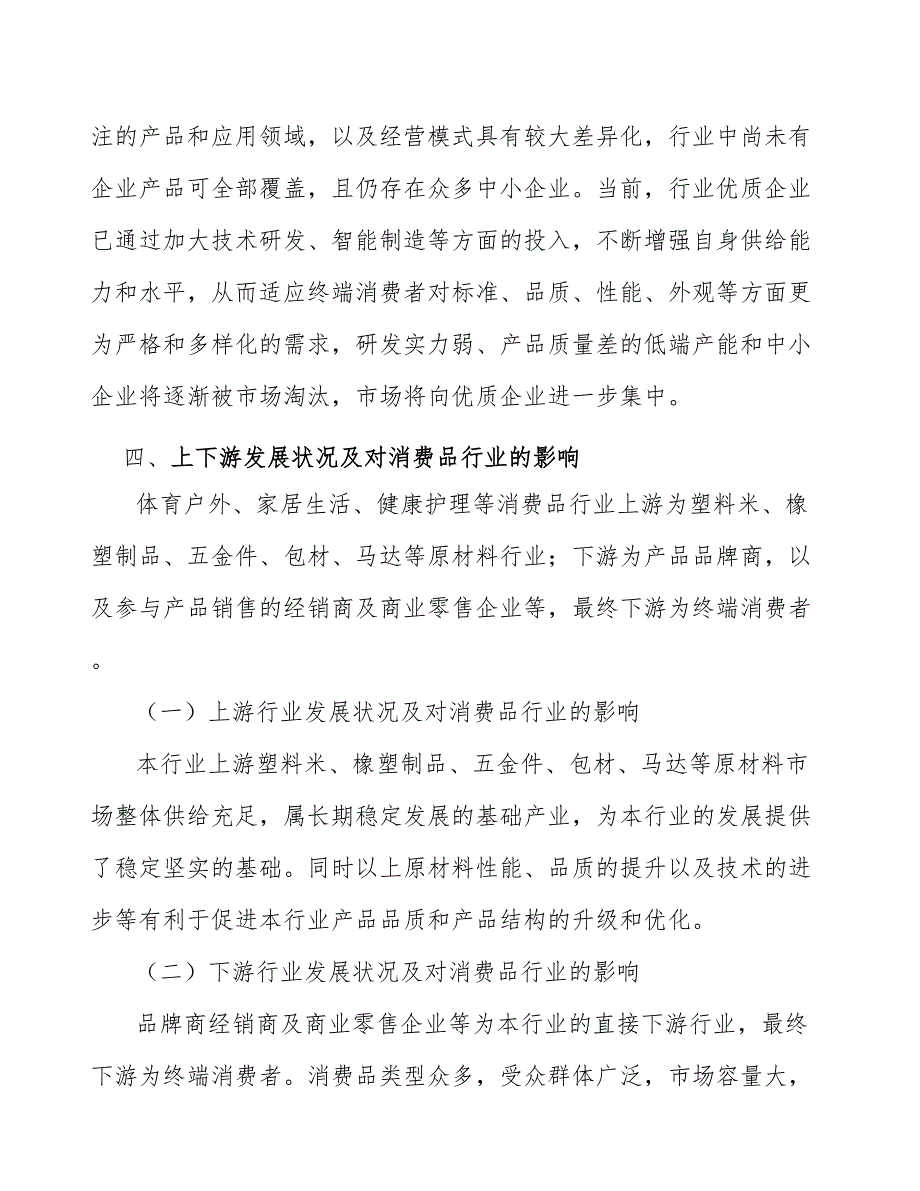 注的产品和应用领域，以及经营模式具有较大差异化，行业中尚未有
企业产品可全部覆盖，且仍存在众多中小企业。当前，行业优质企业
已通过加大技术研发、智能制造等方面的投入，不断增强自身供给能
力和水平，从而适应终端消费者对标准、品质、性能、外观等方面更
为严格和多样化的需求，研发实力弱、产品质量差的低端产能和中小
企业将逐渐被市场淘汰，市场将向优质企业进一步集中。
四、上下游发展状况及对消费品行业的影响
体育户外、家居生活、健康护理等消费品行业上游为塑料米、橡
塑制品、五金件、包材、马达等原材料行业；下游为产品品牌商，以
及参与产品销售的经销商及商业零售企业等，最终下游为终端消费者
。
（一）上游行业发展状况及对消费品行业的影响
本行业上游塑料米、橡塑制品、五金件、包材、马达等原材料市
场整体供给充足，属长期稳定发展的基础产业，为本行业的发展提供
了稳定坚实的基础。同时以上原材料性能、品质的提升以及技术的进
步等有利于促进本行业产品品质和产品结构的升级和优化。
（二）下游行业发展状况及对消费品行业的影响
品牌商经销商及商业零售企业等为本行业的直接下游行业，最终
下游为终端消费者。消费品类型众多，受众群体广泛，市场容量大，